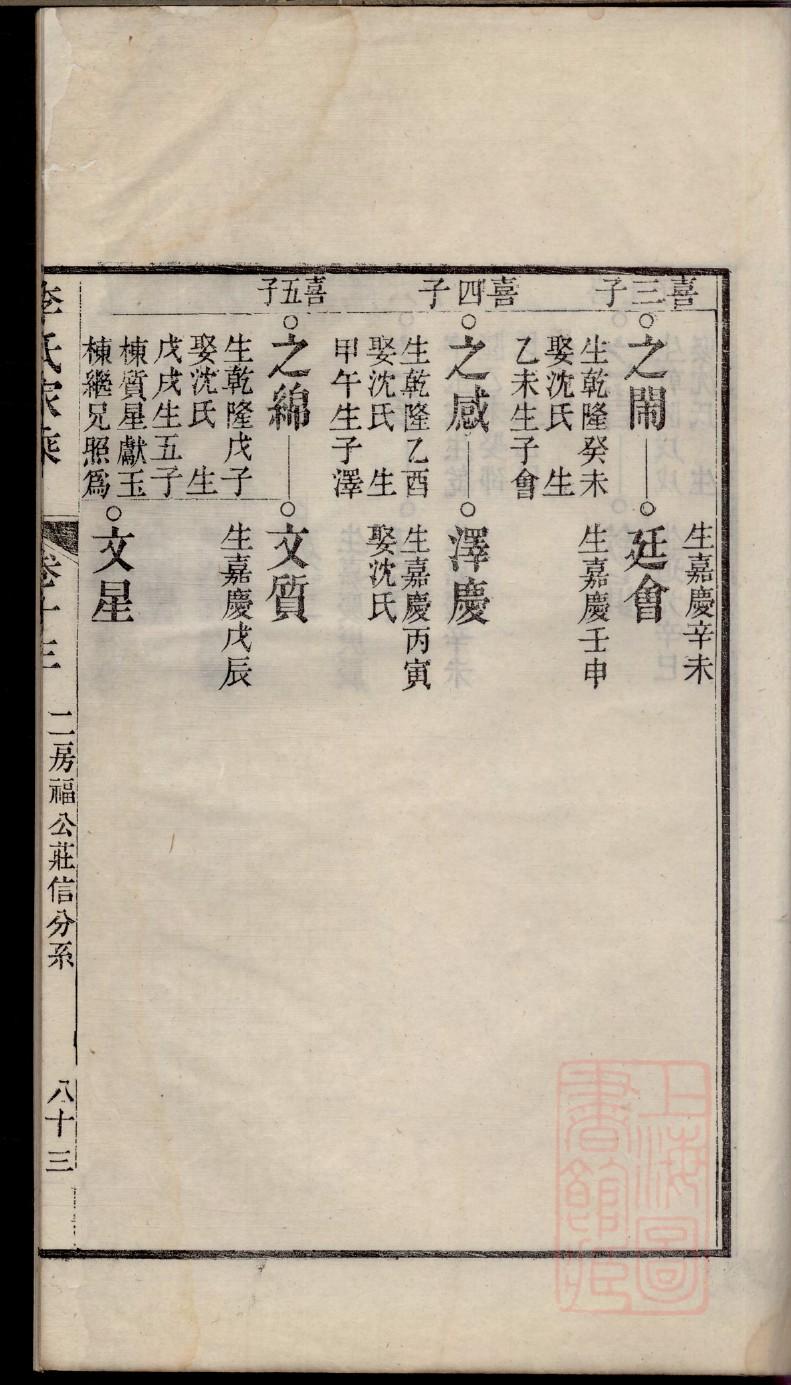 生嘉慶辛未
喜三子
之閙
廷會
生乾隆癸未
娶沈氏 生
乙未生子會
生嘉慶壬申
喜四子
之感
澤慶
生乾隆乙酉
娶沈氏 生
甲午生子澤
生嘉慶丙寅
娶沈氏
喜五子
之綿
文質
生乾隆戊子
娶沈氏 生
戊戌生五子
棟質星獻玉
棟繼兄照爲
生嘉慶戊辰
文星
李氏家乘
卷十三
二房福公莊信分系
八十三
上海圖
書館藏